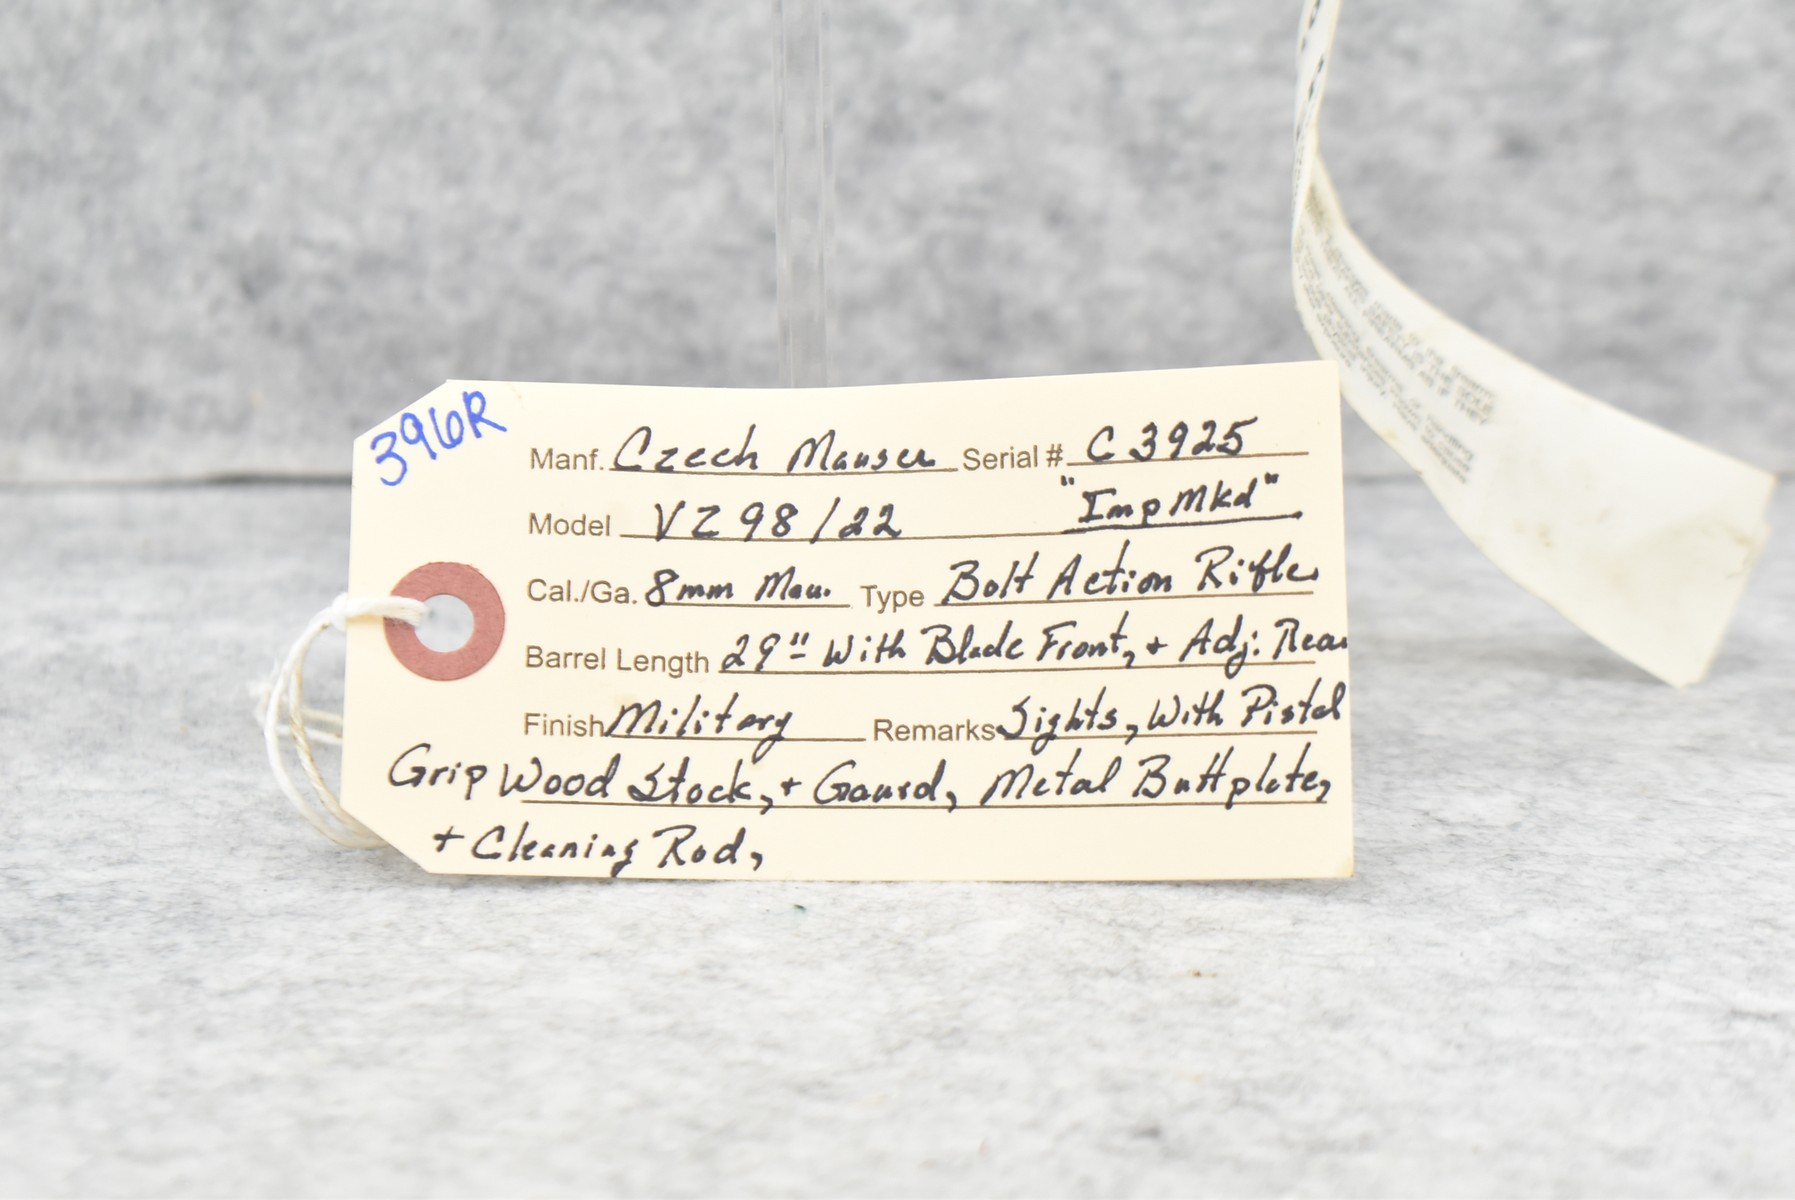 396R
Manf. Czech Mauser Serial # C3925
Model VZ 98/22 "Imp Mkd"
Cal./Ga. 8mm Mau. Type Bolt Action Rifle,
Barrel Length 29" With Blade Front, + Adj. Rear
Finish Military Remarks Sights, With Pistol
Grip Wood Stock, + Gaurd, Metal Buttplate,
+ Cleaning Rod,